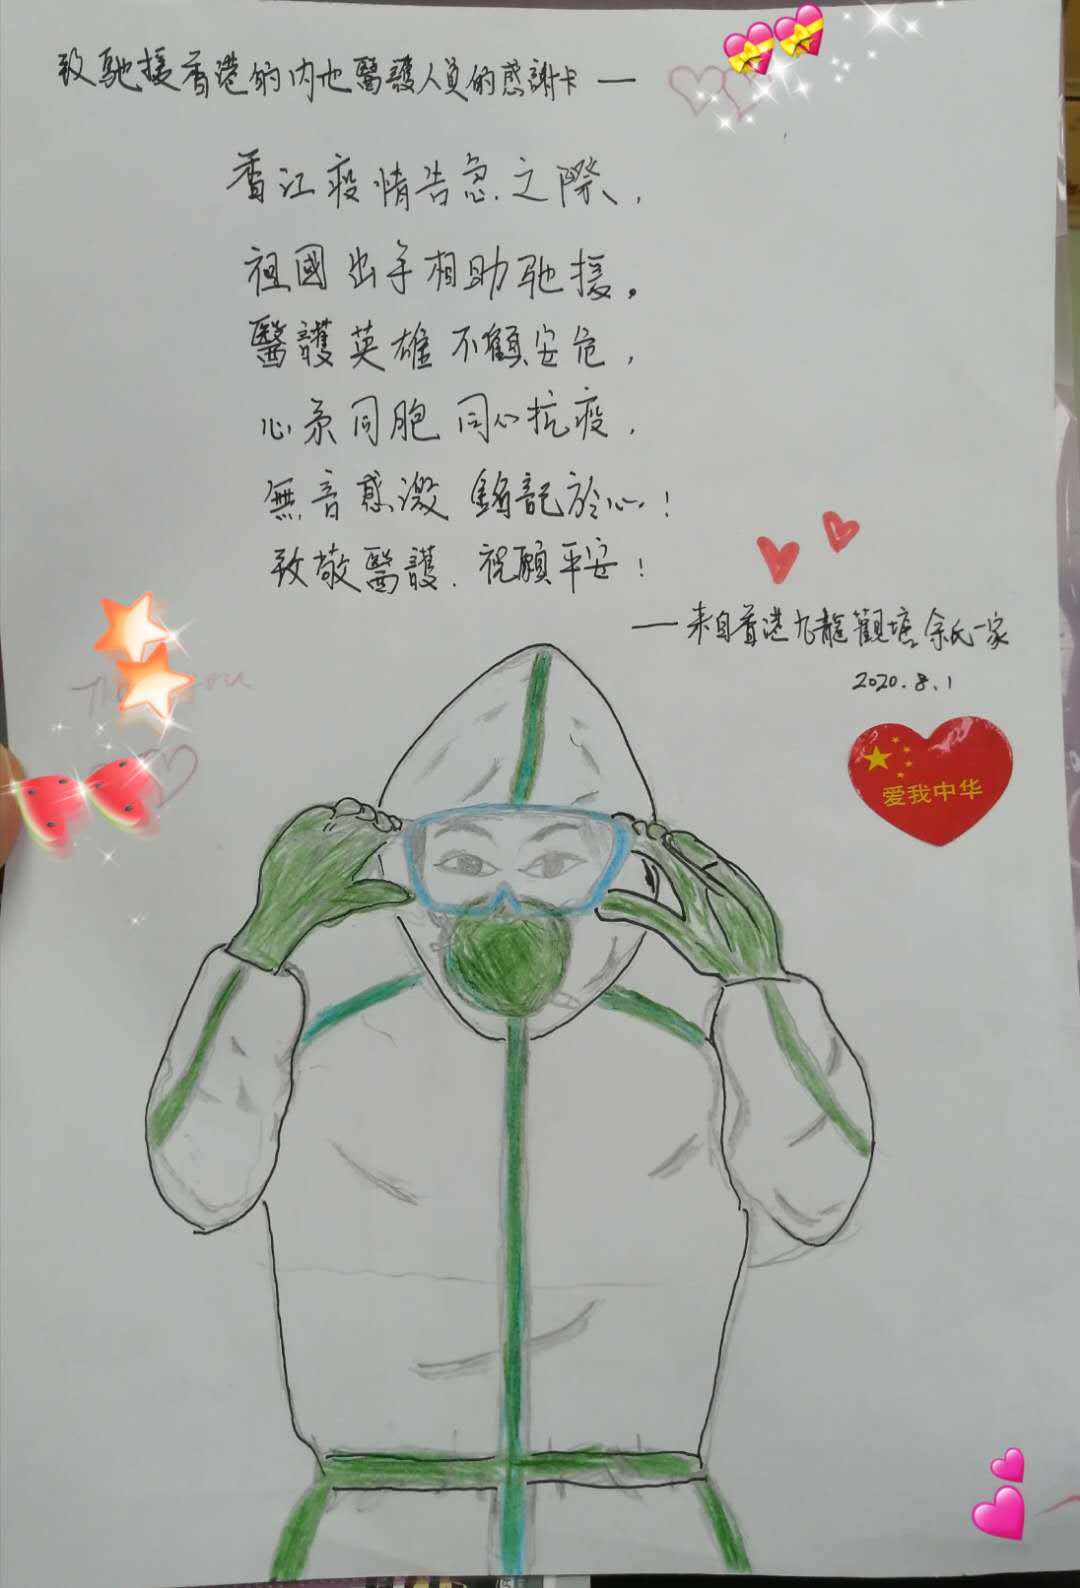 致馳援香港的内地醫護人員的感謝卡—
香江疫情告急之際，
祖國出手相助馳援。
醫護英雄不顧安危，
心系同胞同心抗疫，
無音感激銘記於心！
致敬醫護．祝願平安！
—来自香港九龍觀塘余氏一家
2020.8.1
爱我中华